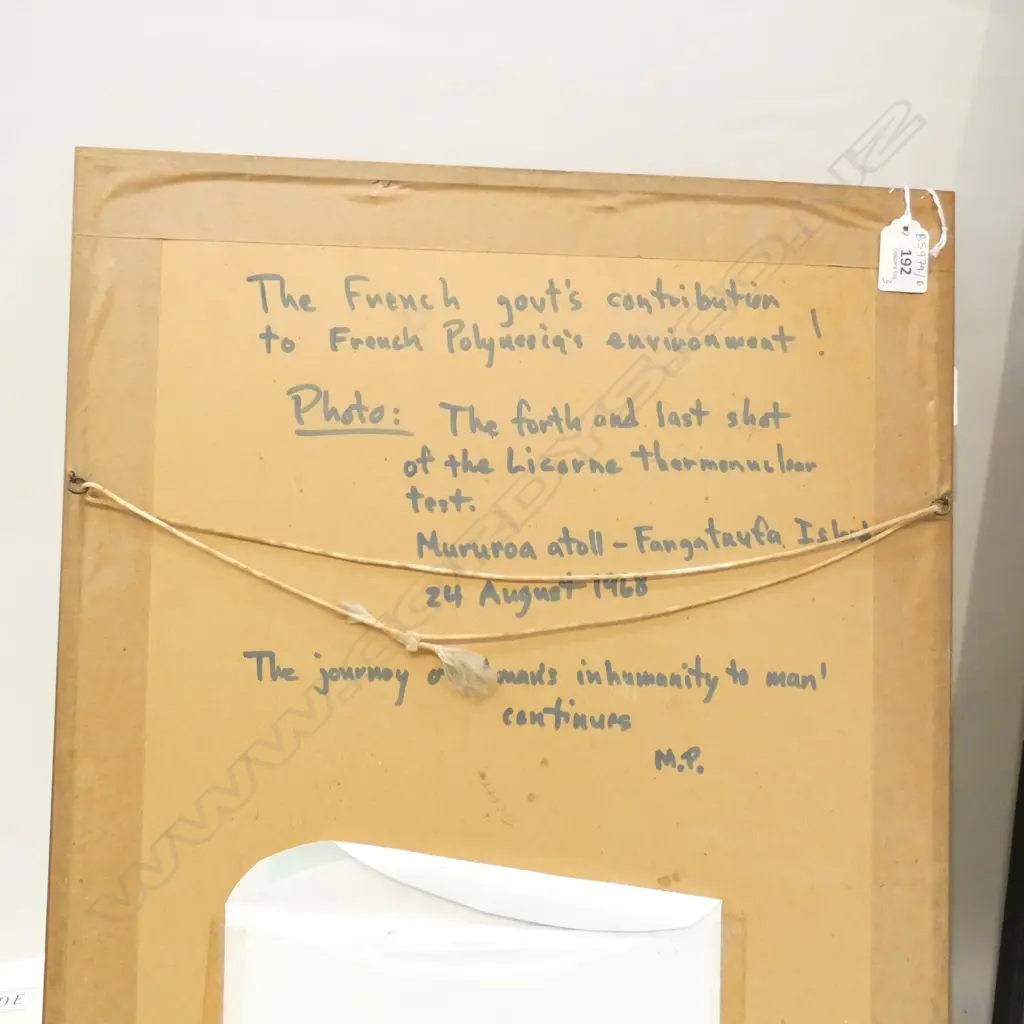 The French govt's contribution
to French Polynesia's environment!
Photo: The forth and last shot
of the Licorne thermonuclear
test.
Mururoa atoll - Fangataufa Island
24 August 1968
The journey of man's inhumanity to man'
continues
M.P.
BS974/8
192
3
WWW.CORDYS.CO.NZ
DE